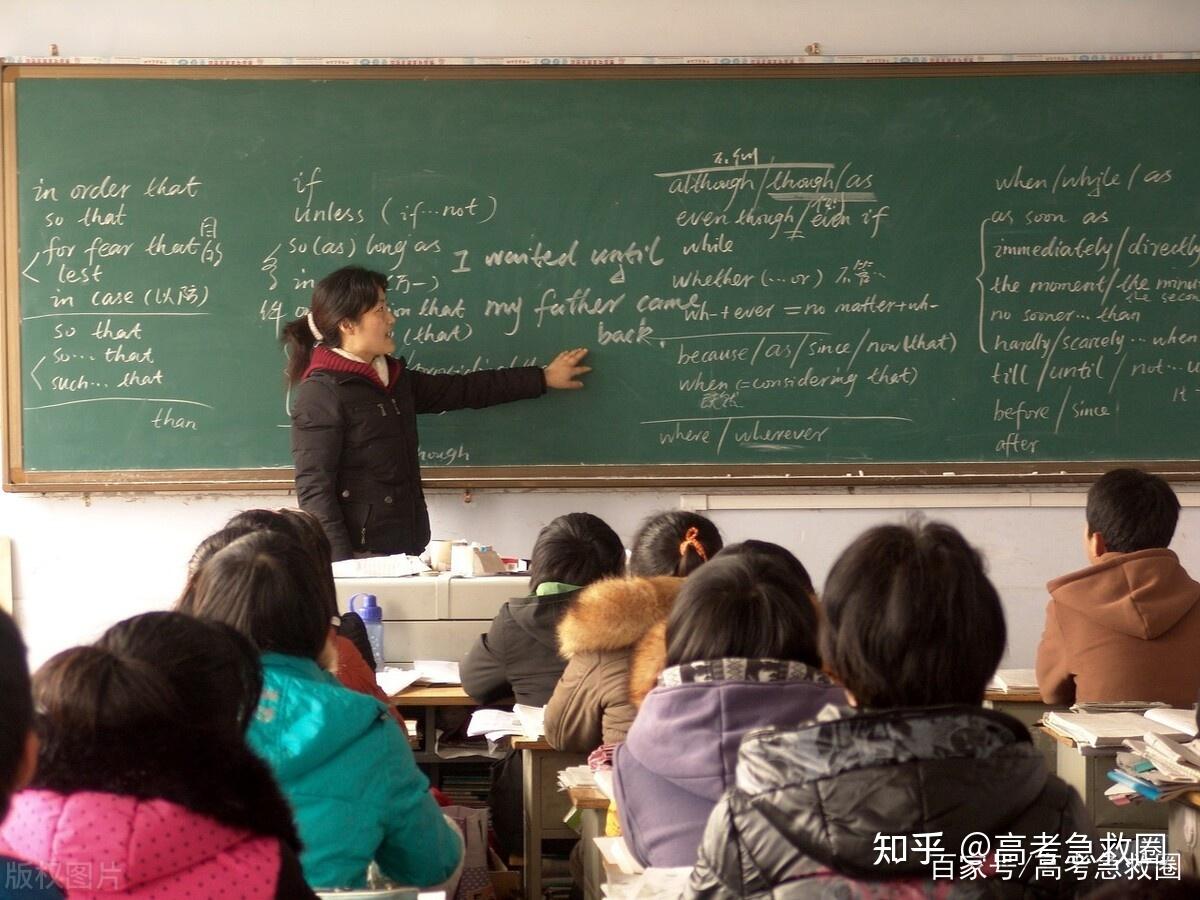 in order that
so that
for fear that
目的
lest
in case (以防)
so that
so... that
such... that
than
if
unless (if...not)
so (as) long as
条件
in
万一)
that
(that)
though
I waited until
my father came
back.
although/though/as
even though/even if
while
whether (...or)
wh-+ever = no matter+wh-
because/as/since/now(that)
when (=considering that)
既然
where/wherever
when/while/as
as soon as
immediately/directly
the moment/the minu
the secon
no sooner... than
hardly/scarcely... when
till/until/not...u
It
before/since
after
知乎 @高考急救圈
百家号/高考急救圈
版权图片